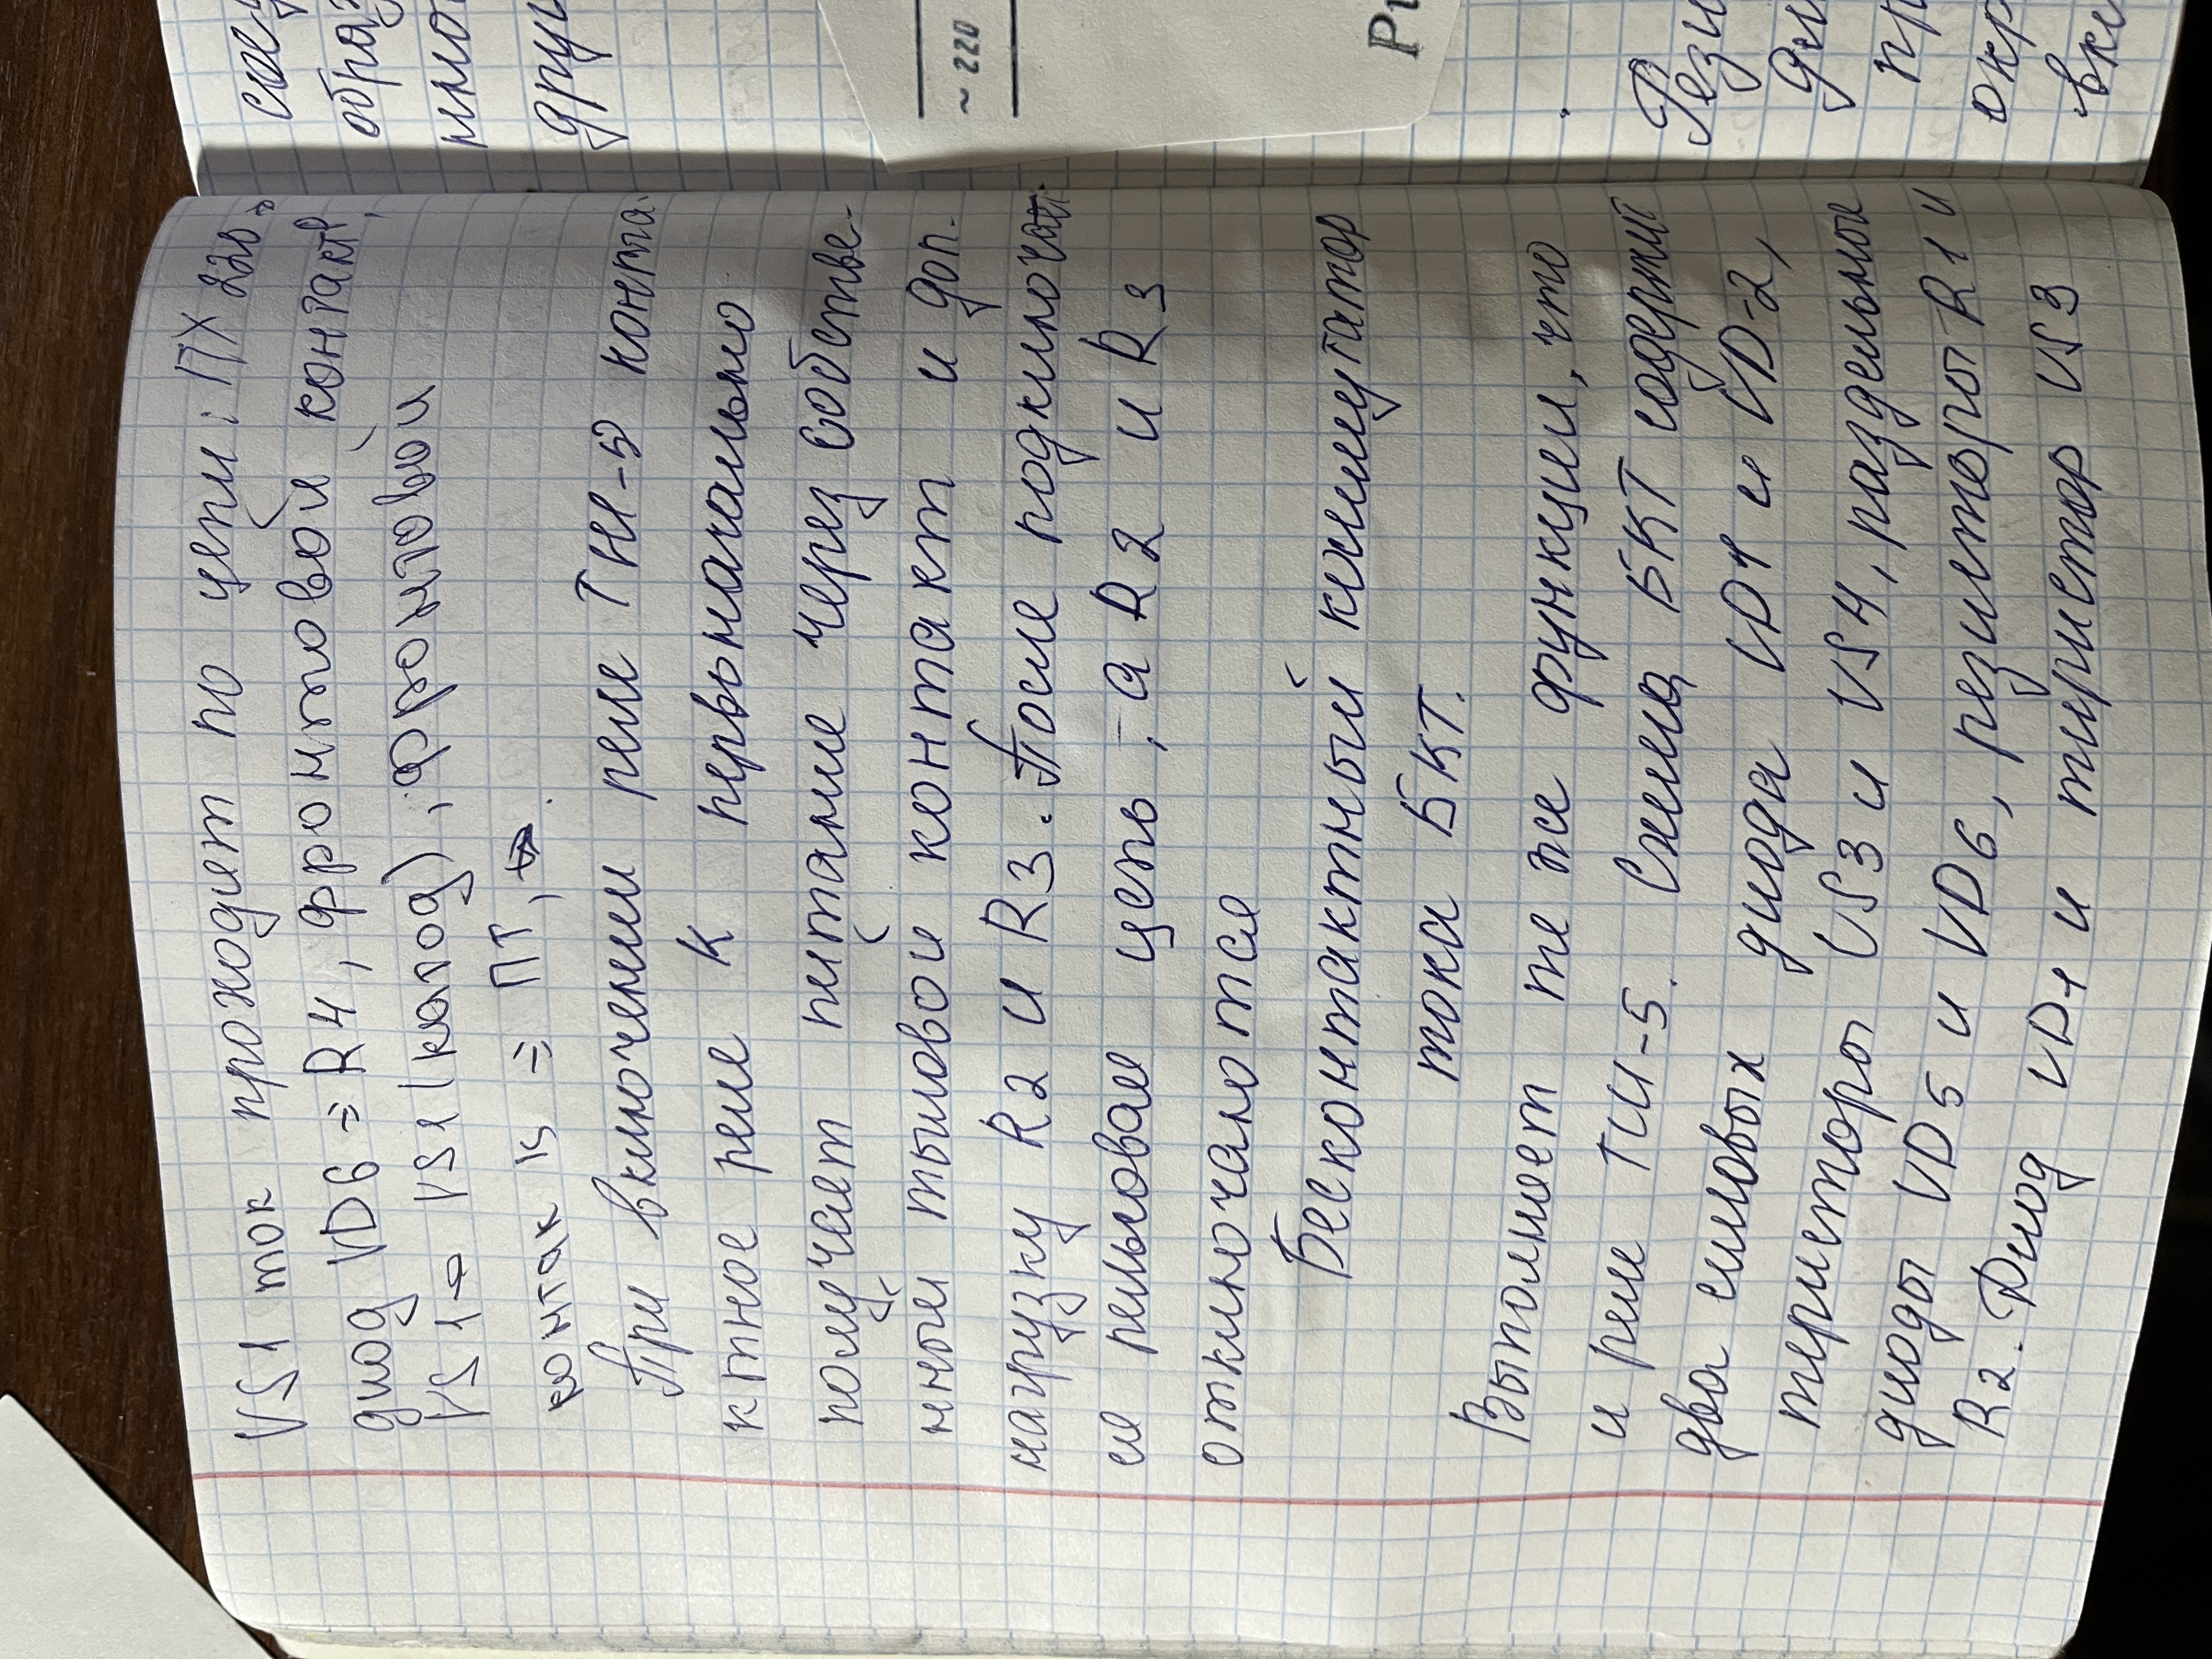 VS1 ток проходит по цепи: ПХ 220 →
диод VD6 = R4, фронтовой контакт,
VS1 → VS1 (катод), фронтовой
контак К = ПТ,
При включении реле ТИ-5 конта-
ктное реле К первоначально
получает питание через собстве-
нный тыловой контакт и доп.
нагрузку R2 и R3. После подключен
ие рельсовая цепь, а R2 и R3
отключаются
Бесконтактный коммутатор
тока БКТ.
Выполняет те же функции, что
и реле ТИ-5. Схема БКТ содержит
два силовых диода VD1 и VD-2,
тиристоры VS3 и VS4, раздельные
диоды VD5 и VD6, резисторы R1 и
R2. Диод VD1 и тиристор VS3
~220
Ри
Рези